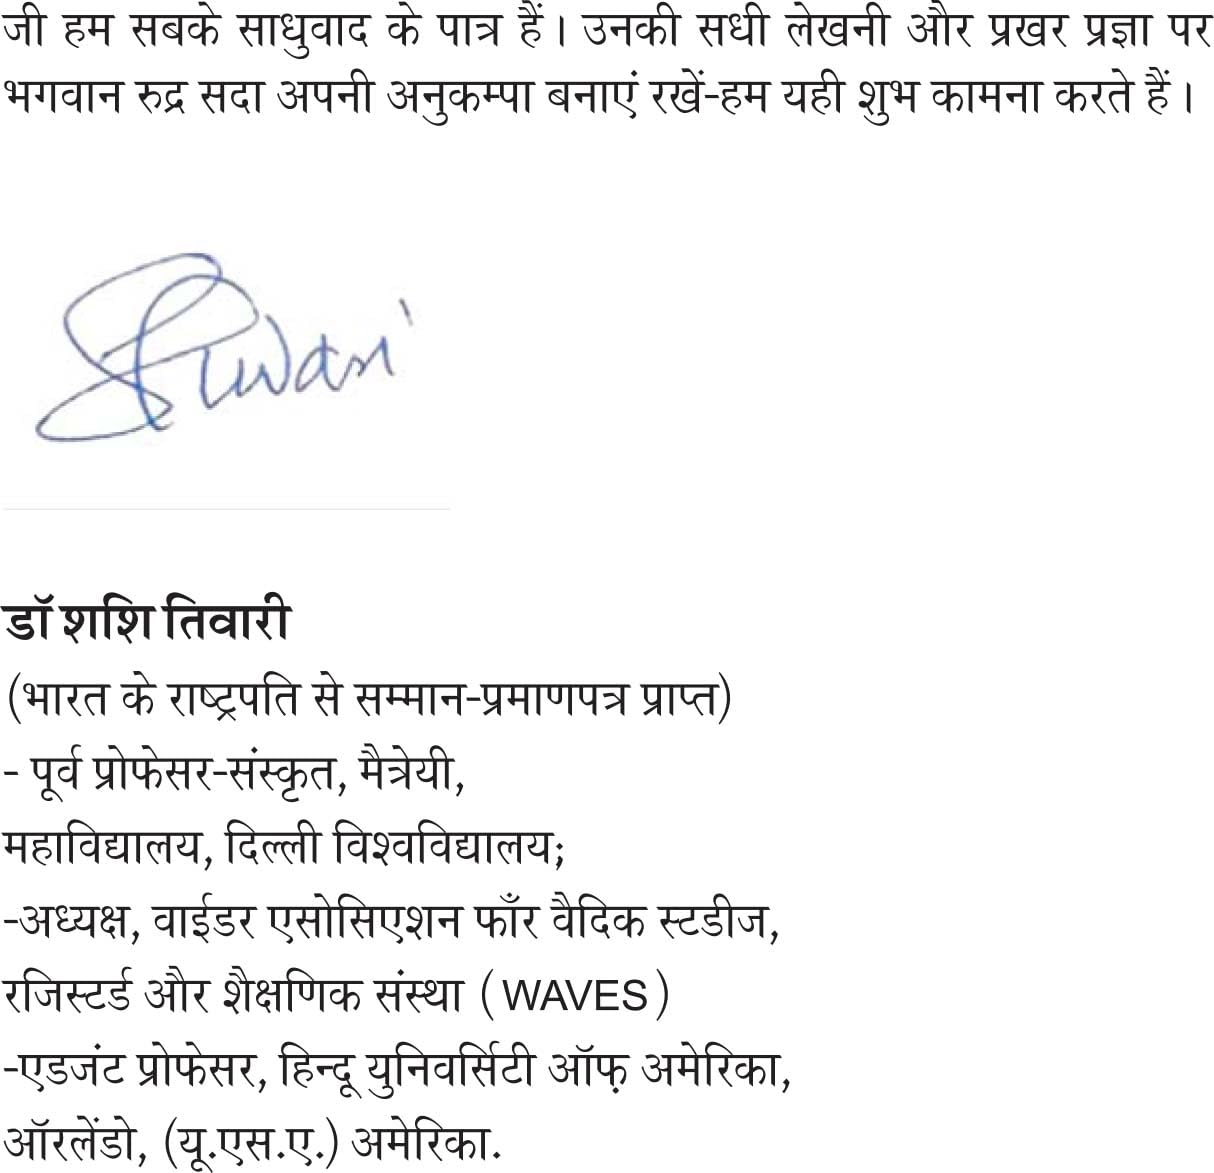 जी हम सबके साधुवाद के पात्र हैं। उनकी सधी लेखनी और प्रखर प्रज्ञा पर
भगवान रुद्र सदा अपनी अनुकम्पा बनाएं रखें-हम यही शुभ कामना करते हैं।
STiwari
डॉ शशि तिवारी
(भारत के राष्ट्रपति से सम्मान-प्रमाणपत्र प्राप्त)
- पूर्व प्रोफेसर-संस्कृत, मैत्रेयी,
महाविद्यालय, दिल्ली विश्वविद्यालय;
-अध्यक्ष, वाईडर एसोसिएशन फाँर वैदिक स्टडीज,
रजिस्टर्ड और शैक्षणिक संस्था (WAVES)
-एडजंट प्रोफेसर, हिन्दू युनिवर्सिटी ऑफ़ अमेरिका,
ऑरलेंडो, (यू.एस.ए.) अमेरिका.